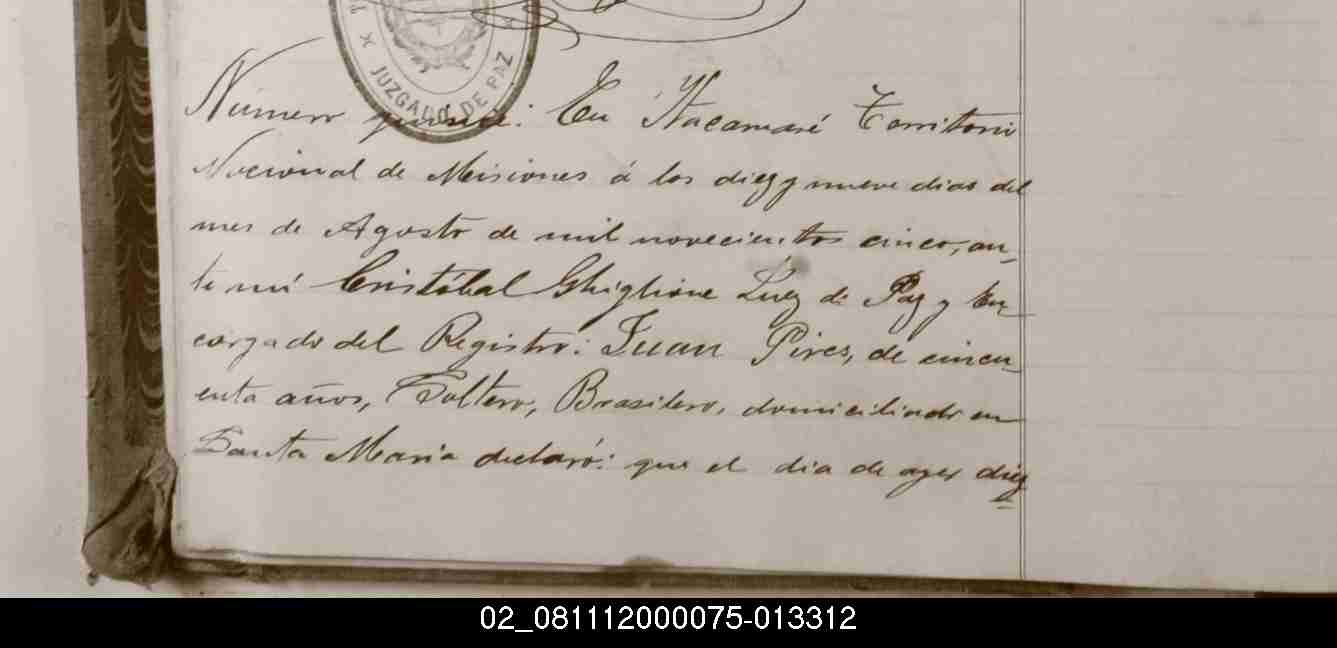 JUZGADO DE PAZ
Número quince: En Itacaruaré Territorio
Nacional de Misiones á los diez y nueve dias del
mes de Agosto de mil novecientos cinco, an
te mi Cristóbal Ghiglione Juez de Paz y En
cargado del Registro: Juan Pires, de cincu
enta años, Soltero, Brasilero, domiciliado en
Santa Maria declaró: que el dia de ayer diez
02_081112000075-013312